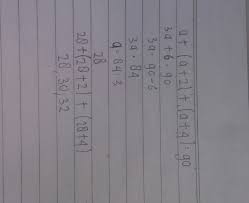 a + (a+2) + (a+4) = 90
3a + 6 = 90
3a = 90-6
3a = 84
a = 84:3
28
28 + (28+2) + (28+4)
28, 30, 32